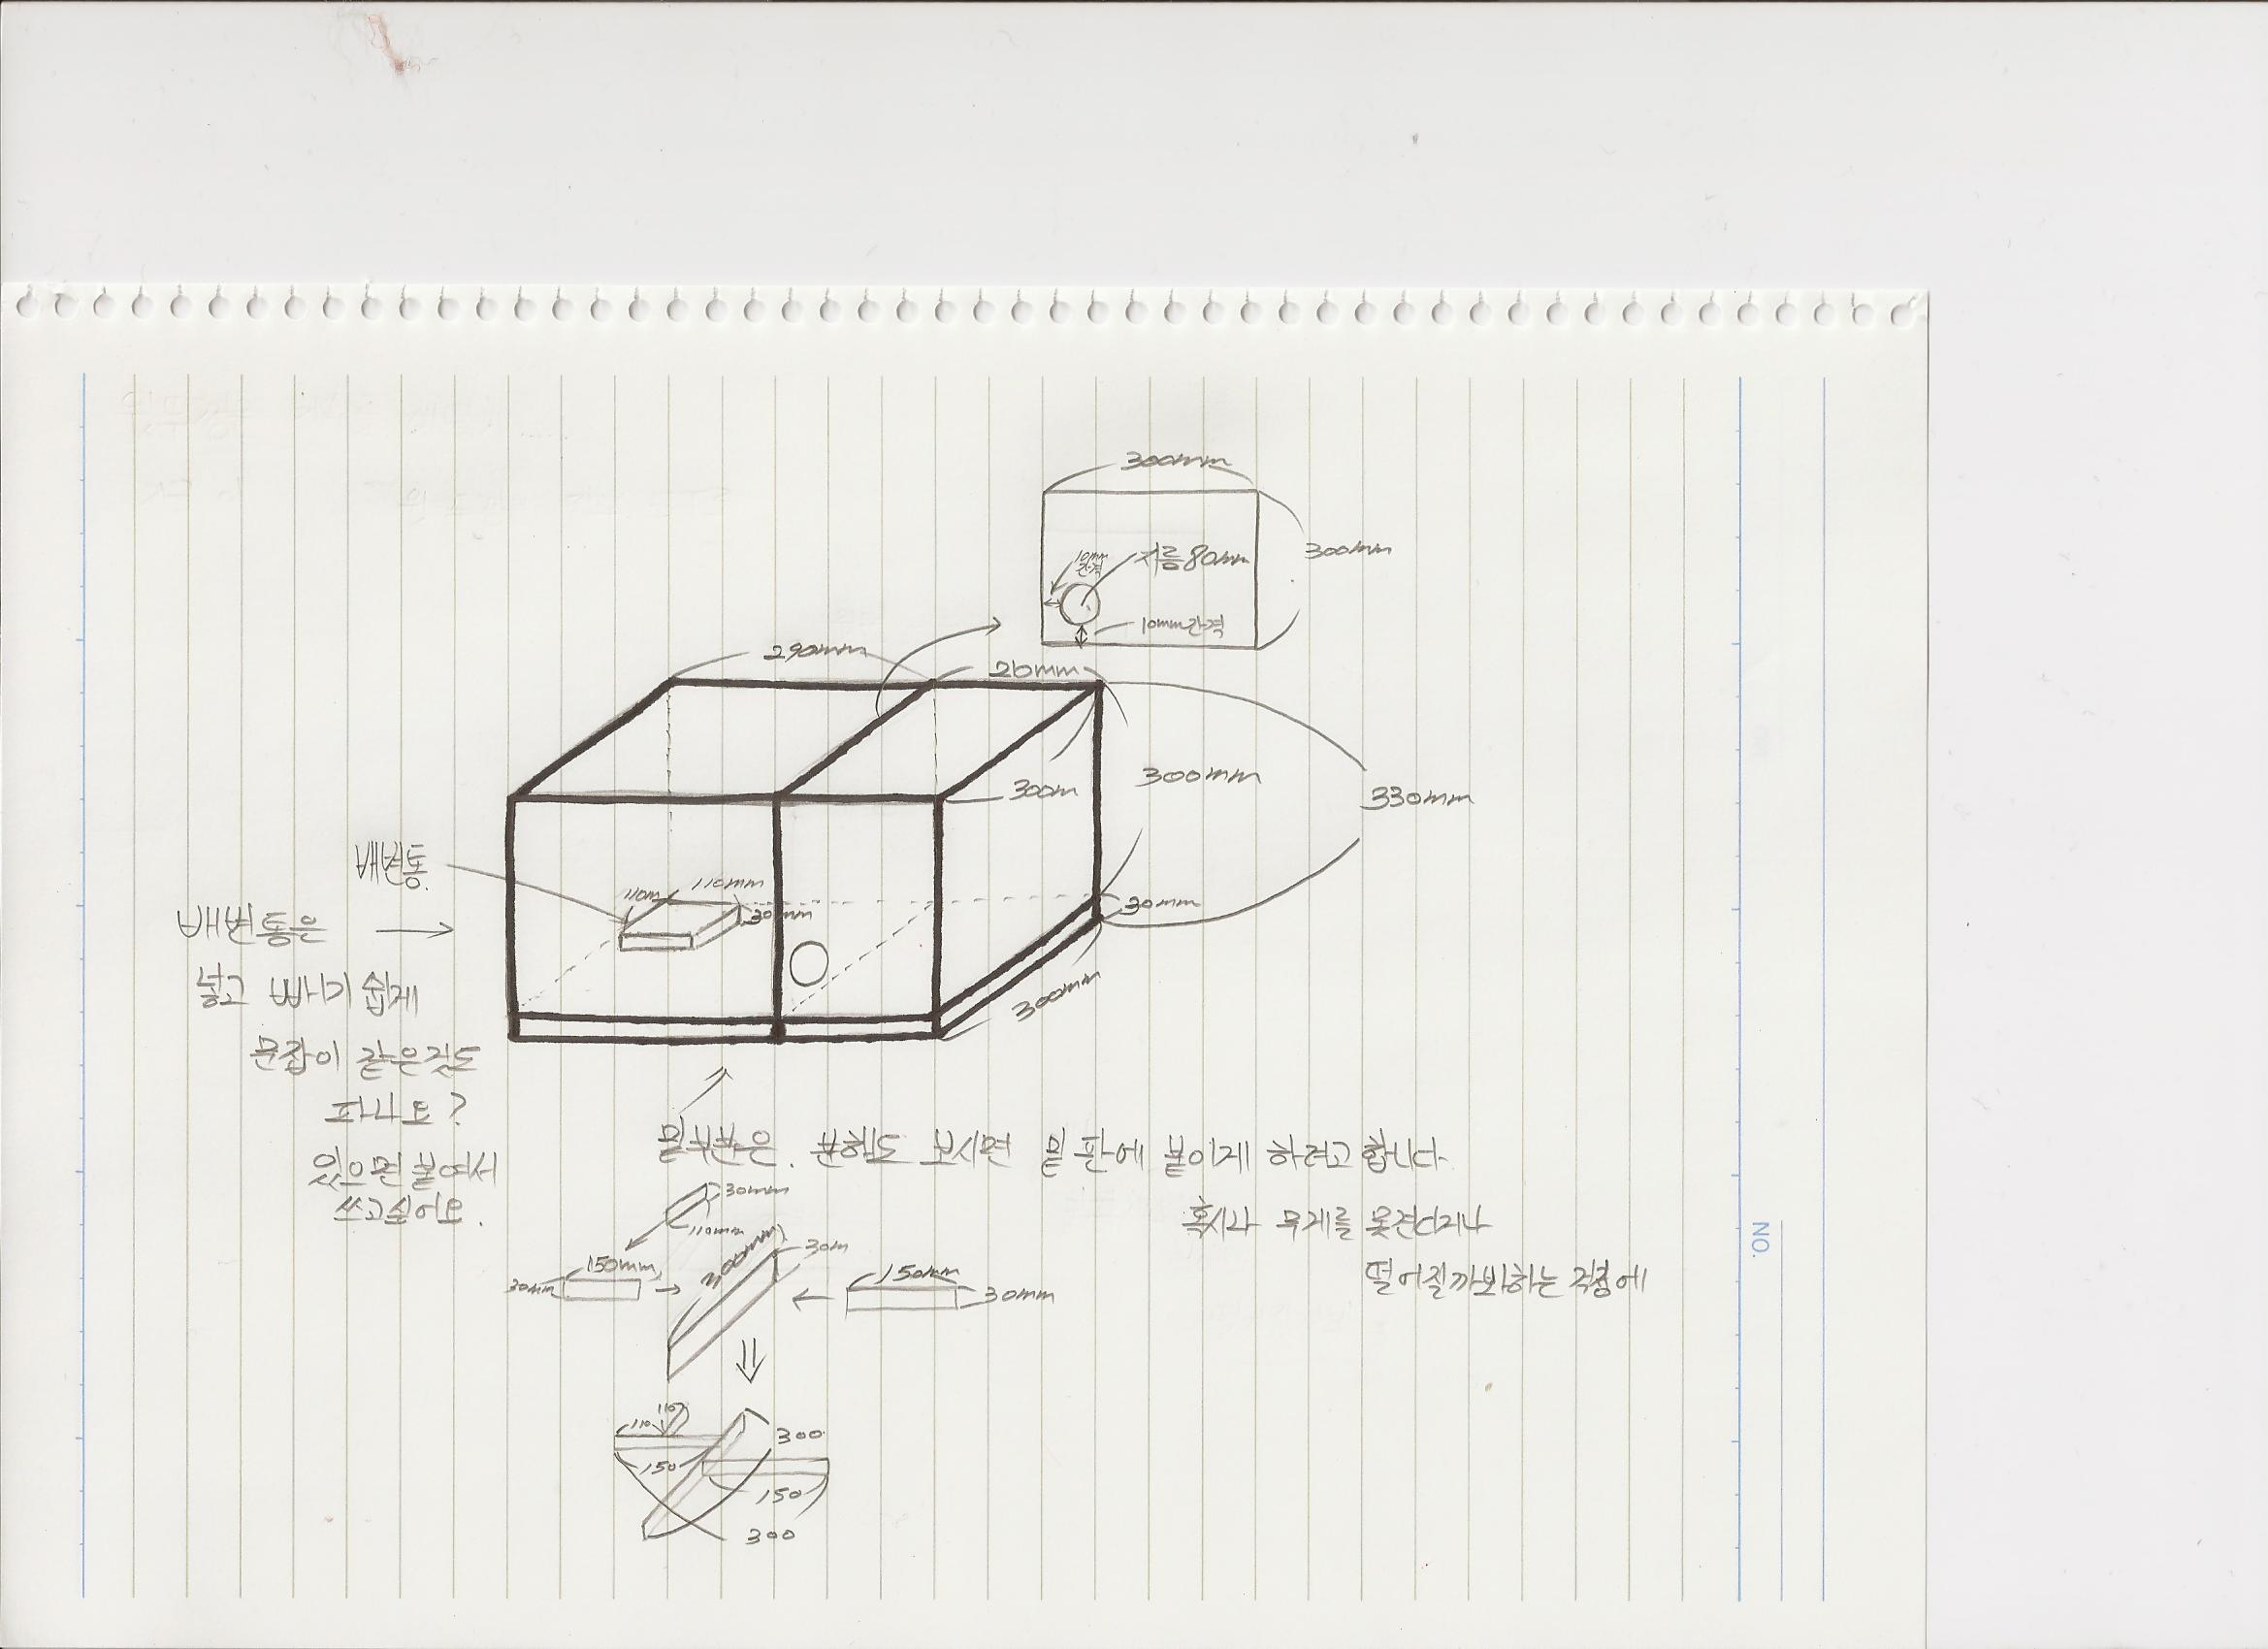 300mm
300mm
10mm
간격
지름80mm
10mm간격
290mm
26mm
300m
300mm
330mm
배변통
110m
110mm
30mm
30mm
300mm
배변통은
넣고 빼기 쉽게
문잡이 같은것도
파나요?
있으면 붙여서
쓰고싶어요.
밑부분은. 분해도 보시면 밑 판에 붙이게 하려고합니다
혹시나 무게를 못견디거나
떨어질까봐하는 걱정에
30mm
110mm
150mm
30mm
300mm
30m
150mm
30mm
110
110
150
300
150
300
NO.